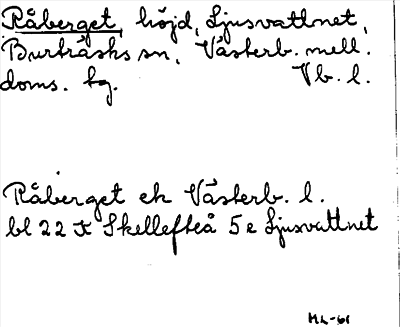 Råberget, höjd, Ljusvattnet,
Burträsks sn, Västerb. mell.
doms. tg. Vb. l.
Råberget ek Västerb. l.
bl 22 K Skellefteå 5 e Ljusvattnet
ML-61